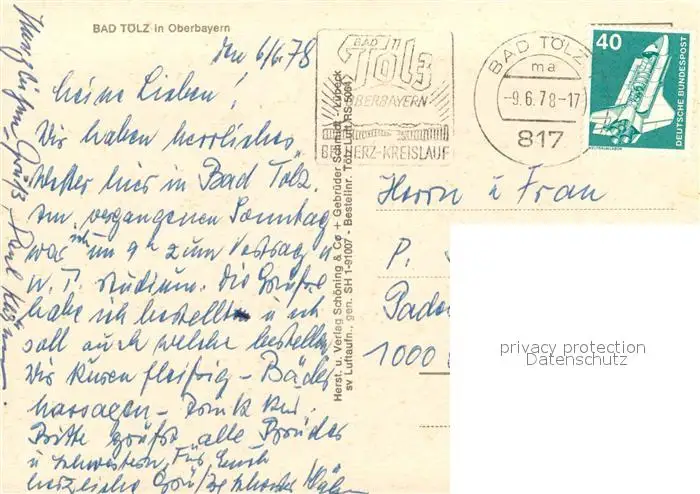 BAD TÖLZ in Oberbayern
den 6/6.78
Meine Lieben!
Wir haben herrliches
Wetter hier in Bad Tölz.
Am vergangenen Sonntag
war ich um 9 zum Vortrag u
W. T. Studium. Die Grüße
habe ich bestellt u ich
soll auch welche bestellen
Wir kuren fleißig – Bäder
massagen – Trink Kur.
Bitte grüßt alle Brüder
u Schwestern, Für Euch
herzliche Grüße
Herst. u. Verlag Schöning & Co + Gebrüder Schmidt · Lübeck
sv Luftaufn., gen. SH 1-91007 - Bestellnr. Tölz-Luft
BAD
Tölz
OBERBAYERN
BEI HERZ-KREISLAUF
BAD TÖLZ
ma
-9.6.78-17
817
40
DEUTSCHE BUNDESPOST
Herrn u Frau
P.
Pader
1000
privacy protection
Datenschutz